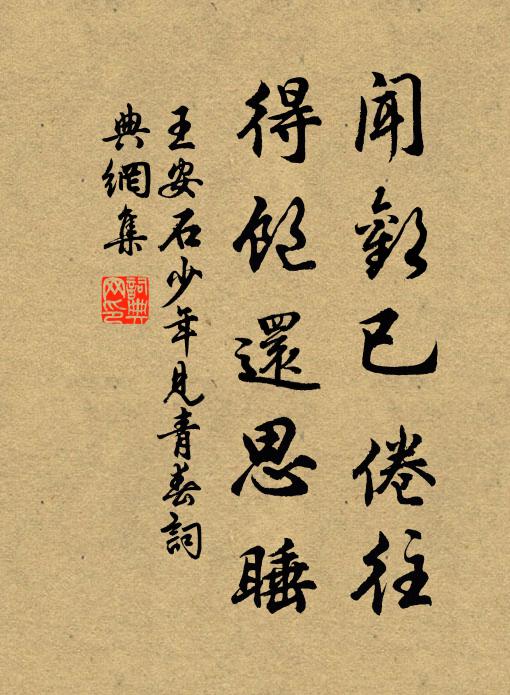 聞歡已倦往
得飽還思睡
王安石少年見青春詞
典網集
詞典網印